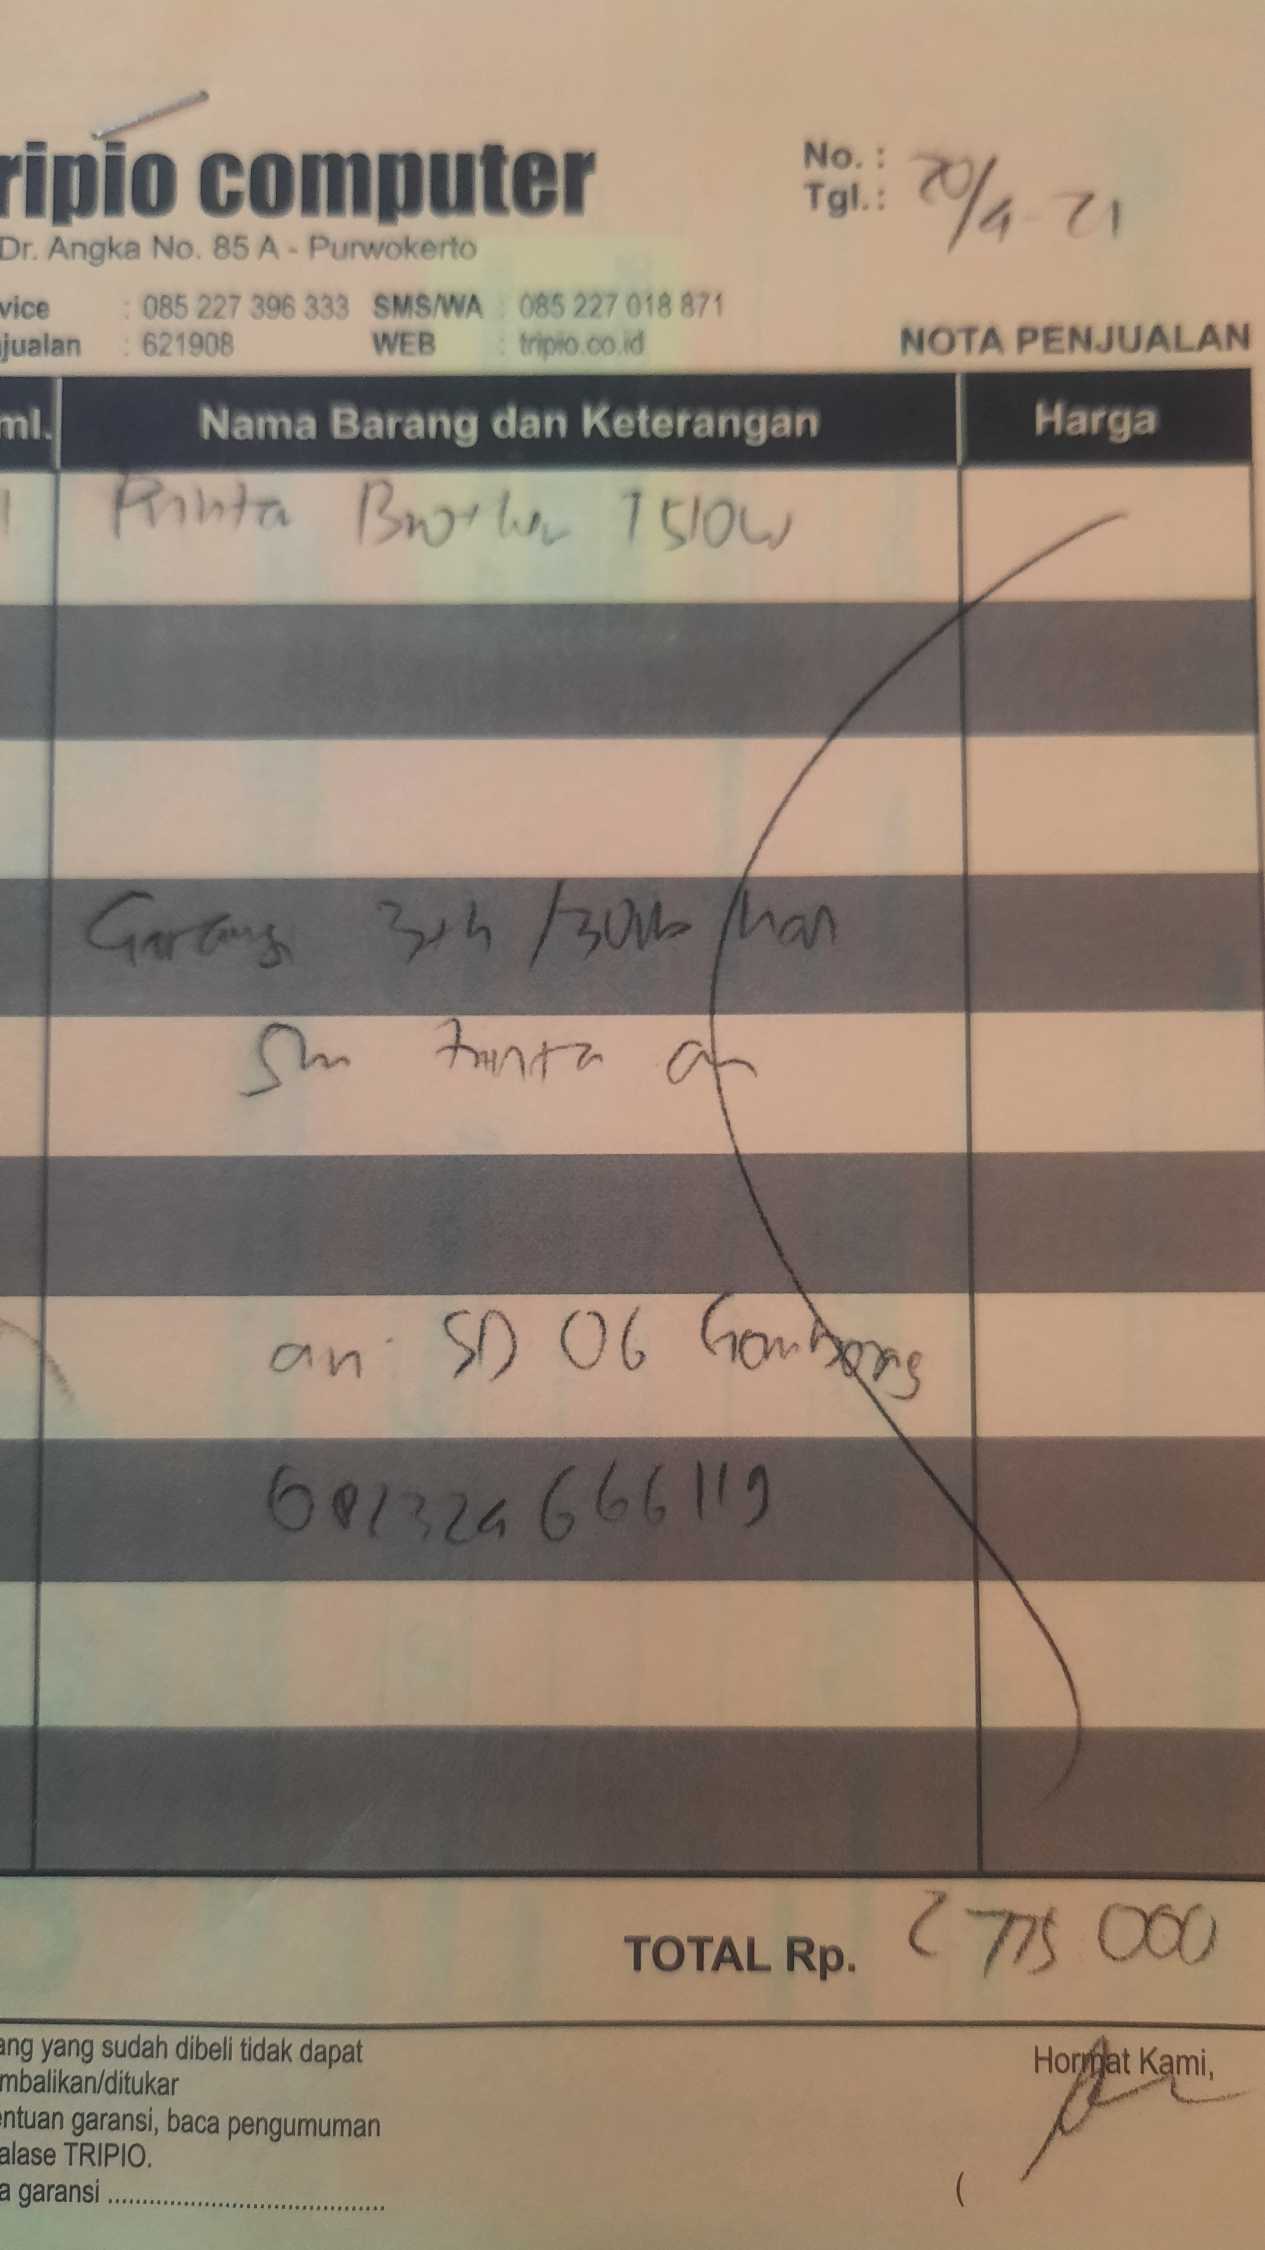 ripio computer
No. :
Tgl.: 20/4-21
Dr. Angka No. 85 A - Purwokerto
vice : 085 227 396 333 SMS/WA : 085 227 018 871
jualan : 621908 WEB : tripio.co.id
NOTA PENJUALAN
ml. Nama Barang dan Keterangan Harga
1 Printer Brother T510W
3th /
an SD 06 Gombong
666119
TOTAL Rp. 2 775 000
ang yang sudah dibeli tidak dapat
mbalikan/ditukar
Hormat Kami,
entuan garansi, baca pengumuman
alase TRIPIO.
a garansi ........................................
(